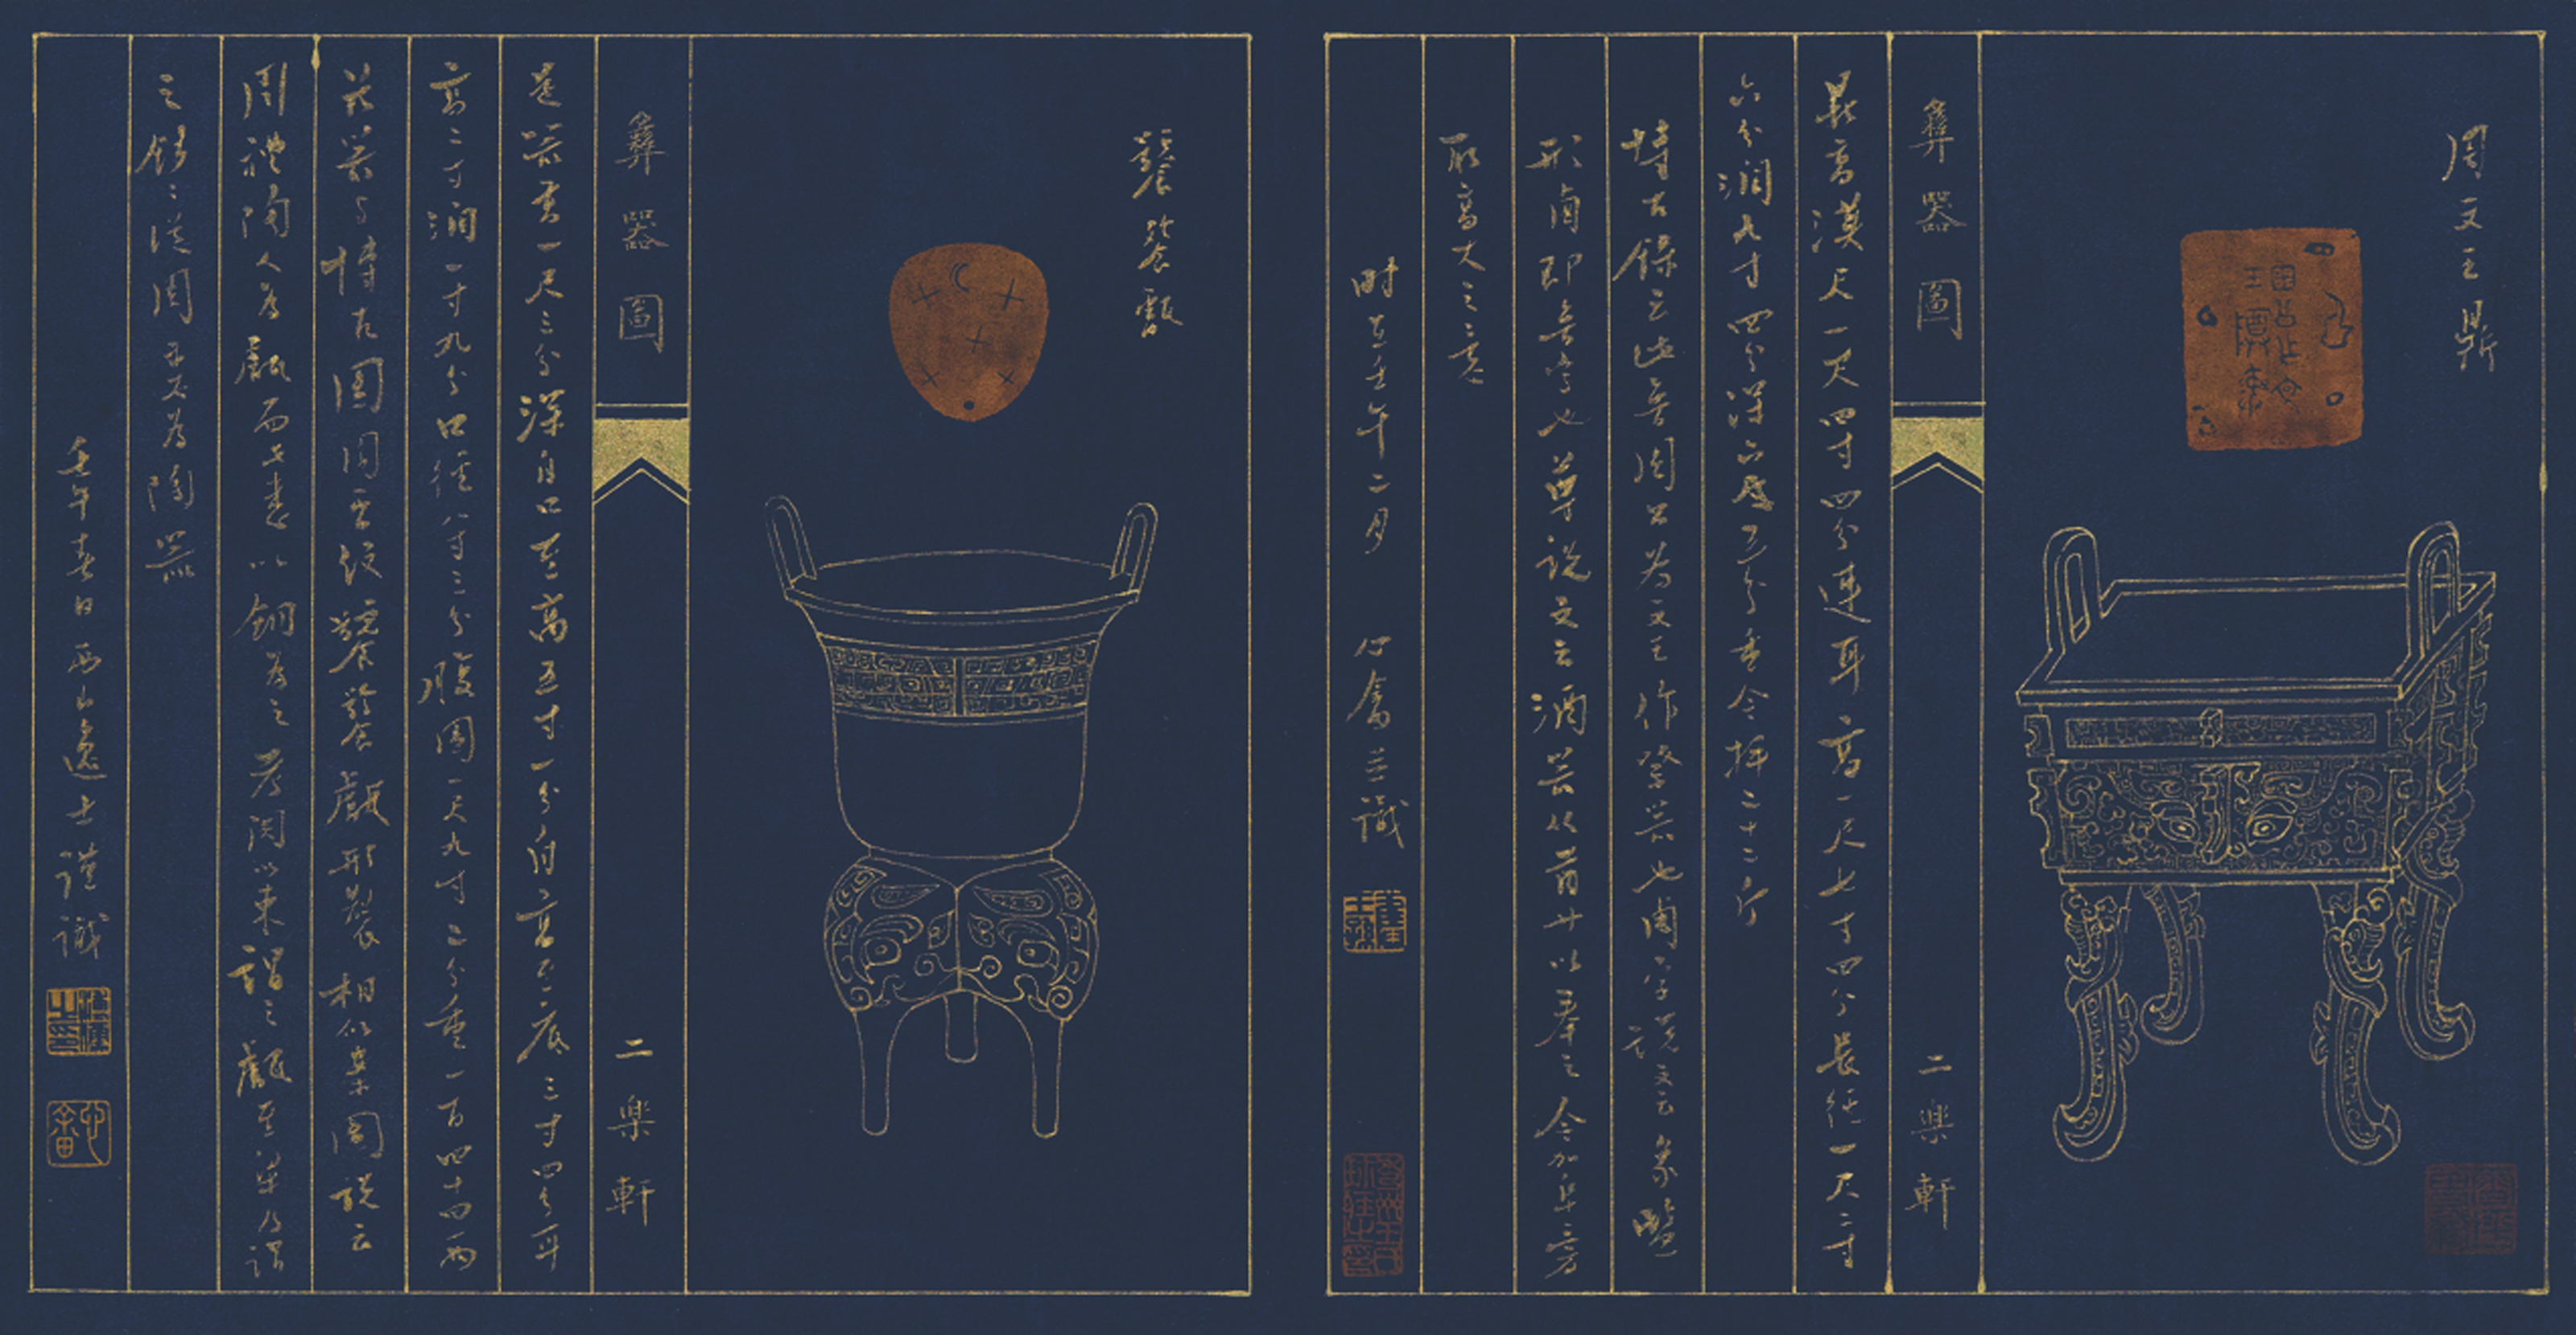 周文王鼎
鹵公作文
王尊彝
彝器圖 二樂軒
鼎高漢尺一尺四寸四分連耳高一尺七寸四分長徑一尺二寸
六分濶九寸四分深六寸三分重今秤二十二斤
博古錄云此魯周公為文王作祭器也鹵字說文云象鹽
形鹵即魯字也尊說文云酒器从酋廾以奉之今加阜旁
取高大之意
時在壬午二月 心畬并識
舊王孫
饕餮甗
彝器圖 二樂軒
是器高一尺三分深自口至鬲五寸一分自鬲至底三寸四分耳
高二寸濶一寸九分口徑八寸三分腹圍一尺九寸二分重一百四十四兩
茲器与博古圖周雲紋饕餮甗形製相似案圖說云
周禮陶人為甗而此類以銅為之考関以東謂之甗至梁乃謂
之鉹鉹
壬午春日西山逸士謹識
溥儒之印
心畬